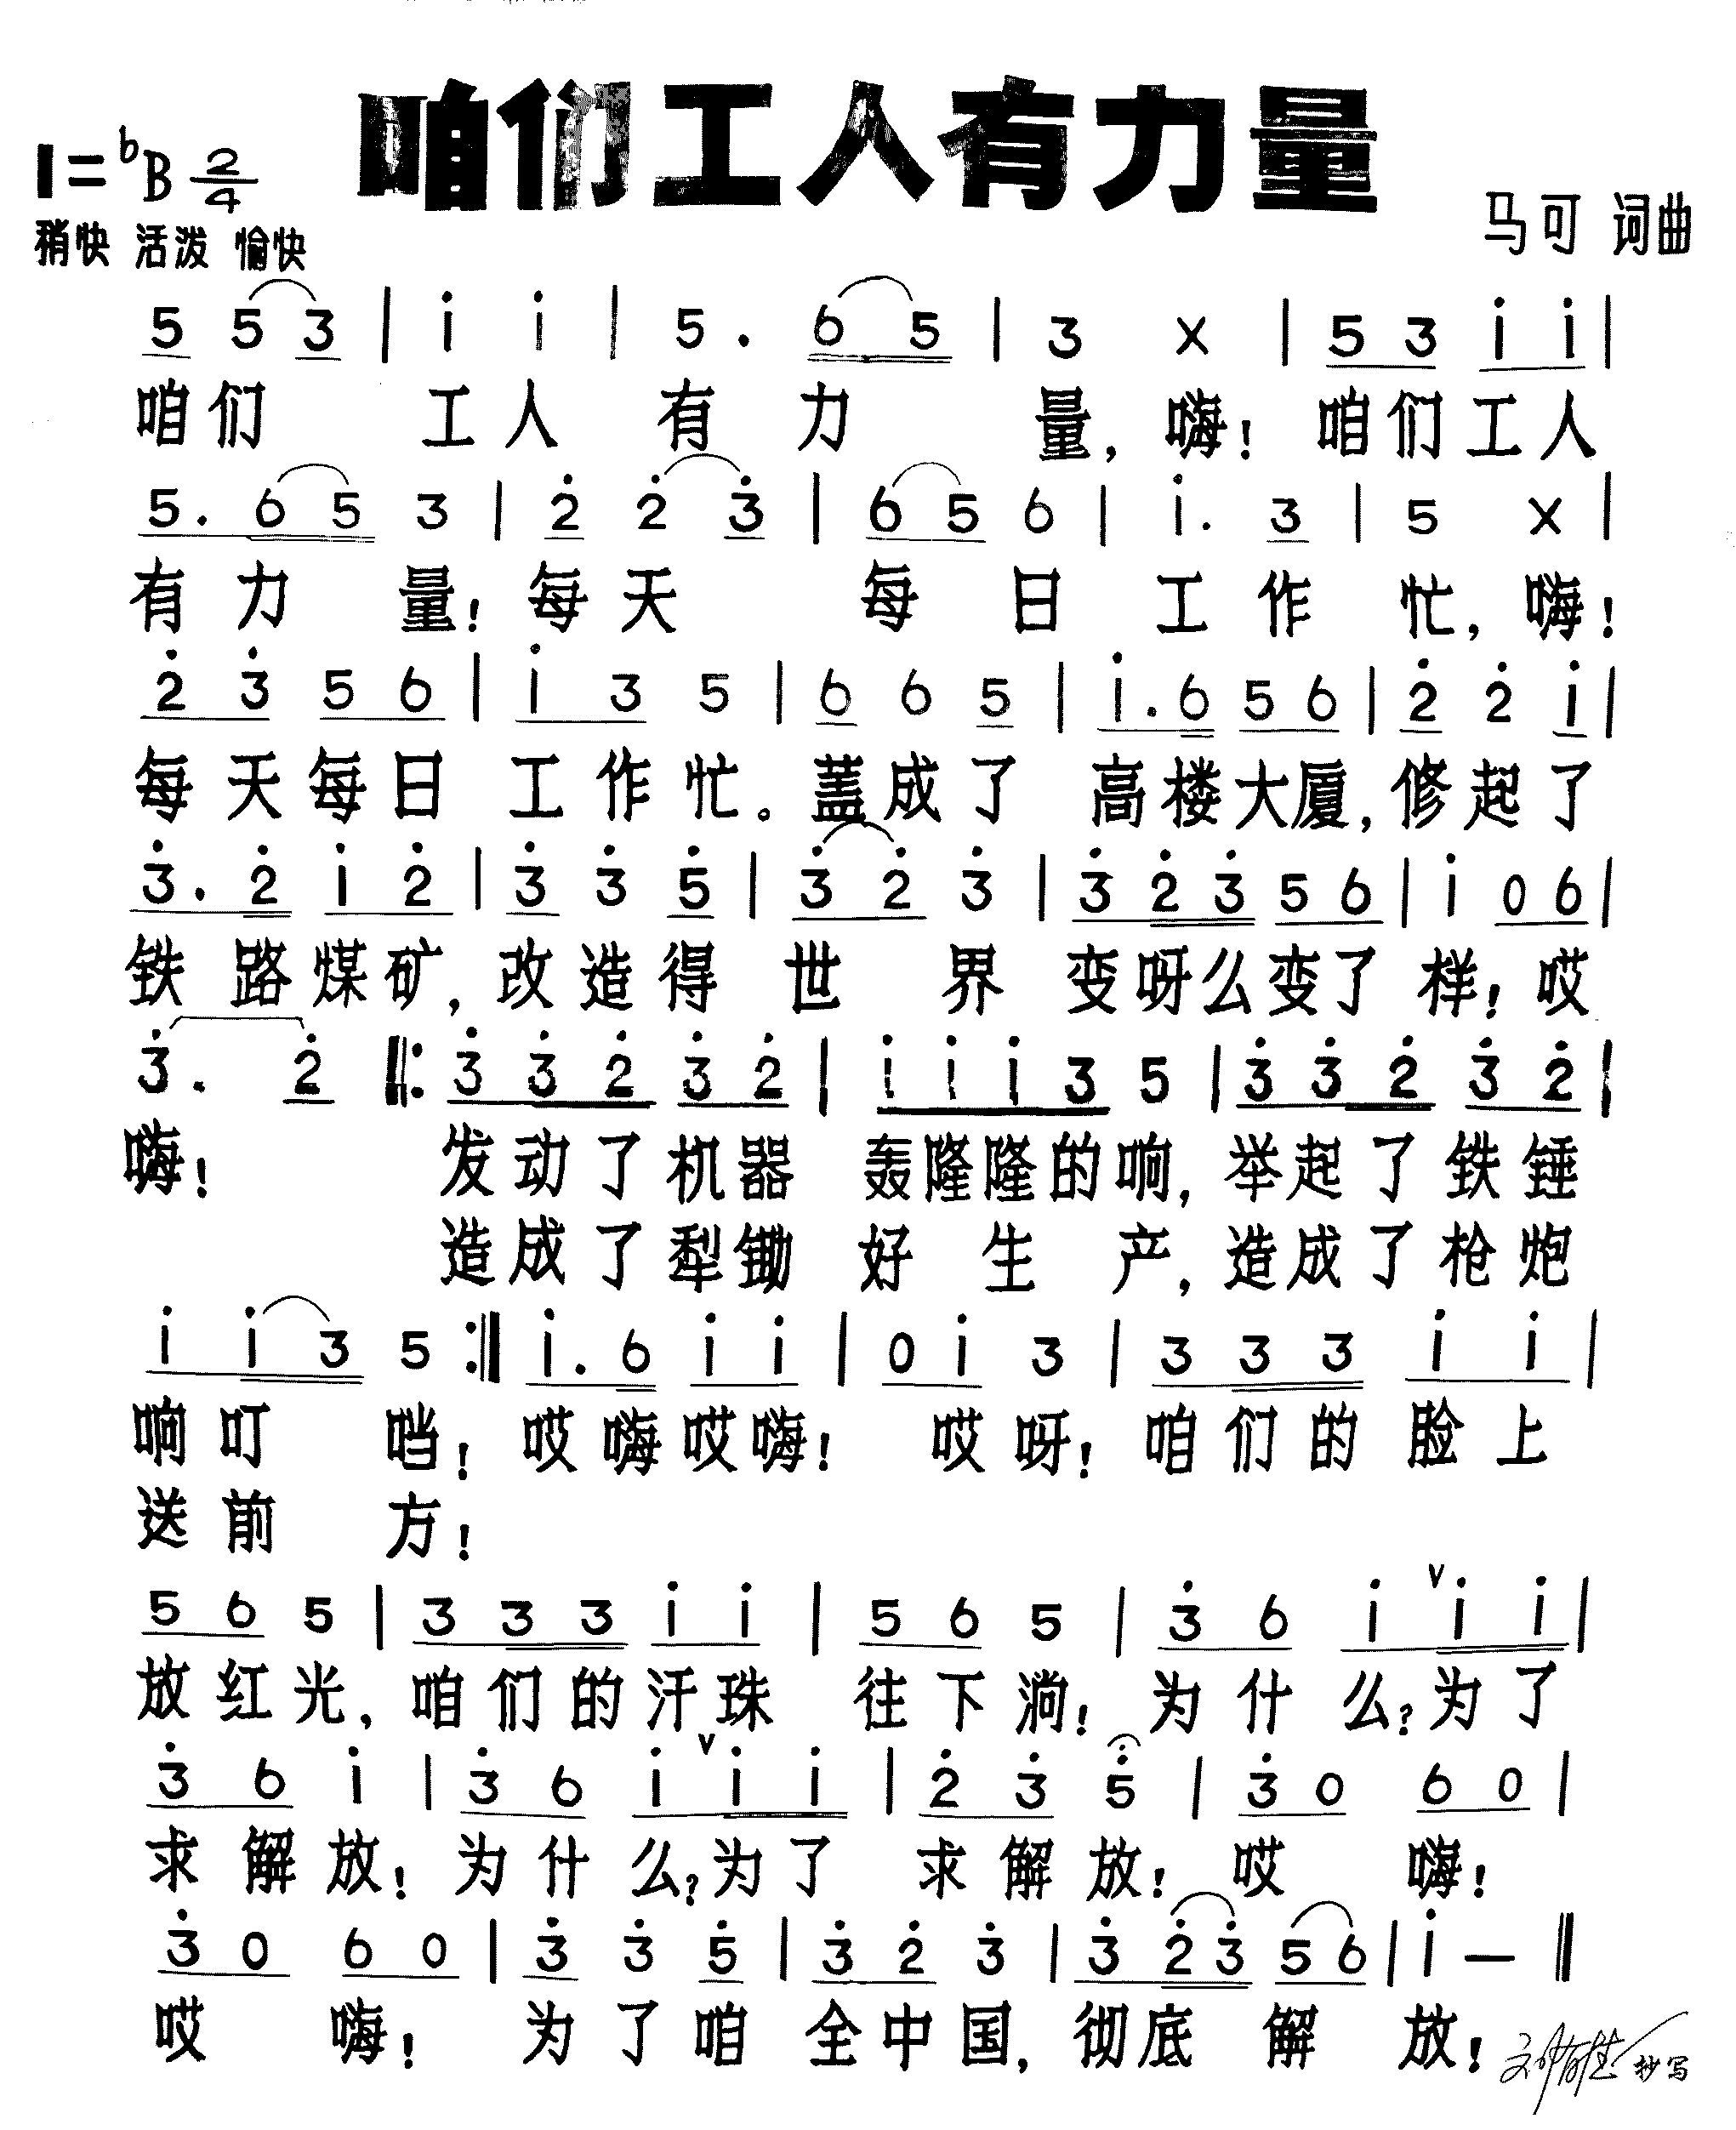 咱们工人有力量
1=bB 2/4
稍快 活泼 愉快
马可 词曲
5 5 3 | i i | 5 . 6 5 | 3 X | 5 3 i i |
咱们 工人 有 力 量，嗨！咱们工人
5 . 6 5 3 | 2 2 3 | 6 5 6 | i . 3 | 5 X |
有 力 量！每天 每 日 工 作 忙，嗨！
2 3 5 6 | i 3 5 | 6 6 5 | i . 6 5 6 | 2 2 i |
每天每日 工作忙。蓋成了 高楼大厦，修起了
3 . 2 i 2 | 3 3 5 | 3 2 3 | 3 2 3 5 6 | i 0 6 |
铁 路煤矿，改造得 世 界 变呀么变了 样！哎
3 . 2 ‖: 3 3 2 3 2 | i i i 3 5 | 3 3 2 3 2 |
嗨！ 发动了机器 轰隆隆的响，举起了铁锤
造成了犁锄 好 生 产，造成了枪炮
i i 3 5 :‖ i . 6 i i | 0 i 3 | 3 3 3 i i |
响叮 当！哎嗨哎嗨！ 哎呀！咱们的脸上
送前 方！
5 6 5 | 3 3 3 i i | 5 6 5 | 3 6 i ∨ i i |
放红光，咱们的汗珠 往下淌！为什 么？为了
3 6 i | 3 6 i ∨ i i | 2 3 5 | 3 0 6 0 |
求解放！为什 么？为了 求解放！哎 嗨！
3 0 6 0 | 3 3 5 | 3 2 3 | 3 2 3 5 6 | i — ‖
哎 嗨！ 为了咱 全中国，彻底 解 放！
抄写